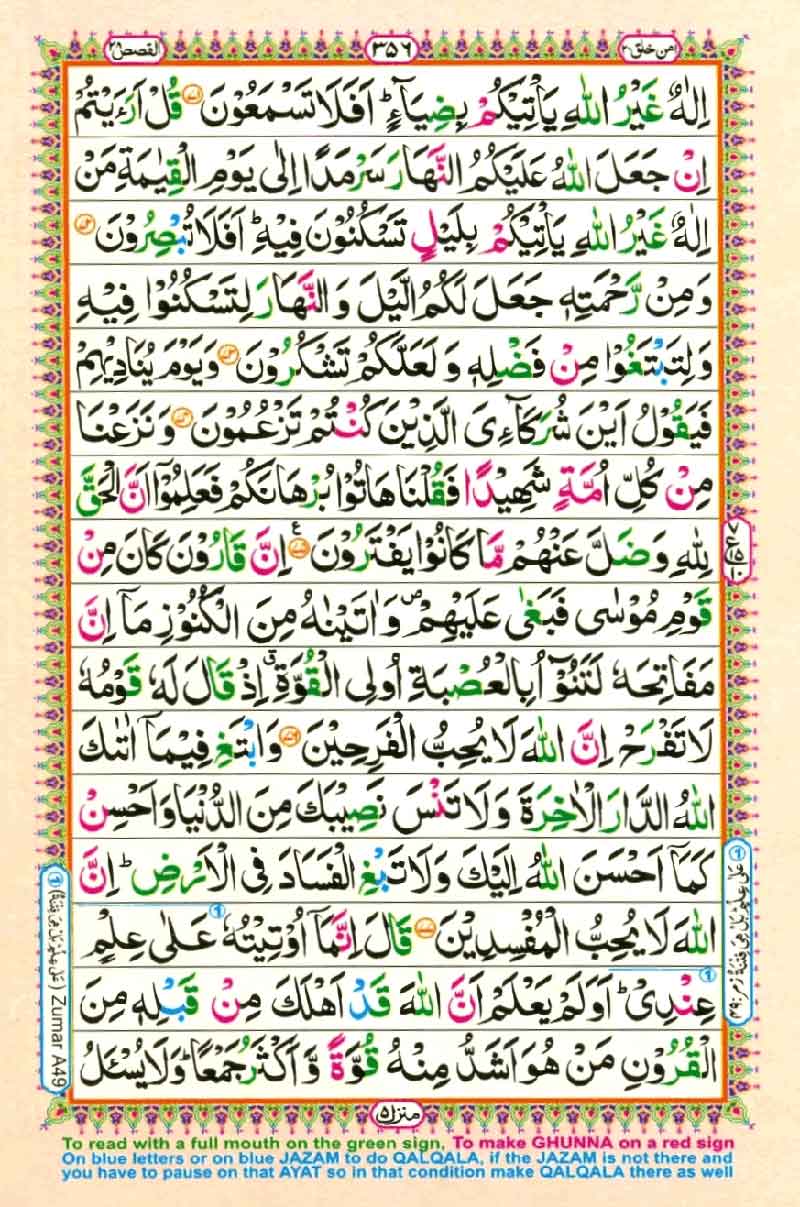 امن خلق ٢٠
٣٥٦
القصص ٢٨
اِلٰهٌ غَيْرُ اللّٰهِ يَاْتِيْكُمْ بِضِيَآءٍ ؕ اَفَلَا تَسْمَعُوْنَ ﴿۷۱﴾ قُلْ اَرَءَيْتُمْ
اِنْ جَعَلَ اللّٰهُ عَلَيْكُمُ النَّهَارَ سَرْمَدًا اِلٰى يَوْمِ الْقِيٰمَةِ مَنْ
اِلٰهٌ غَيْرُ اللّٰهِ يَاْتِيْكُمْ بِلَيْلٍ تَسْكُنُوْنَ فِيْهِ ؕ اَفَلَا تُبْصِرُوْنَ ﴿۷۲﴾
وَمِنْ رَّحْمَتِهٖ جَعَلَ لَكُمُ الَّيْلَ وَالنَّهَارَ لِتَسْكُنُوْا فِيْهِ
وَلِتَبْتَغُوْا مِنْ فَضْلِهٖ وَلَعَلَّكُمْ تَشْكُرُوْنَ ﴿۷۳﴾ وَيَوْمَ يُنَادِيْهِمْ
فَيَقُوْلُ اَيْنَ شُرَكَآءِىَ الَّذِيْنَ كُنْتُمْ تَزْعُمُوْنَ ﴿۷۴﴾ وَنَزَعْنَا
مِنْ كُلِّ اُمَّةٍ شَهِيْدًا فَقُلْنَا هَاتُوْا بُرْهَانَكُمْ فَعَلِمُوْٓا اَنَّ الْحَقَّ
لِلّٰهِ وَضَلَّ عَنْهُمْ مَّا كَانُوْا يَفْتَرُوْنَ ﴿۷۵﴾ ع اِنَّ قَارُوْنَ كَانَ مِنْ
قَوْمِ مُوْسٰى فَبَغٰى عَلَيْهِمْ ۪ وَاٰتَيْنٰهُ مِنَ الْكُنُوْزِ مَآ اِنَّ
مَفَاتِحَهٗ لَتَنُوْٓاُ بِالْعُصْبَةِ اُولِى الْقُوَّةِ ۗ اِذْ قَالَ لَهٗ قَوْمُهٗ
لَا تَفْرَحْ اِنَّ اللّٰهَ لَا يُحِبُّ الْفَرِحِيْنَ ﴿۷۶﴾ وَابْتَغِ فِيْمَآ اٰتٰىكَ
اللّٰهُ الدَّارَ الْاٰخِرَةَ وَلَا تَنْسَ نَصِيْبَكَ مِنَ الدُّنْيَا وَاَحْسِنْ
كَمَآ اَحْسَنَ اللّٰهُ اِلَيْكَ وَلَا تَبْغِ الْفَسَادَ فِى الْاَرْضِ ؕ اِنَّ
اللّٰهَ لَا يُحِبُّ الْمُفْسِدِيْنَ ﴿۷۷﴾ قَالَ اِنَّمَآ اُوْتِيْتُهٗ عَلٰى عِلْمٍ
عِنْدِىْ ؕ اَوَلَمْ يَعْلَمْ اَنَّ اللّٰهَ قَدْ اَهْلَكَ مِنْ قَبْلِهٖ مِنَ
الْقُرُوْنِ مَنْ هُوَ اَشَدُّ مِنْهُ قُوَّةً وَّاَكْثَرُ جَمْعًا ؕ وَلَا يُسْـَٔلُ
٧ ع ١٥ ١٠
① عَلٰى عِلْمٍ بَلْ هِىَ فِتْنَةٌ زمر:٤٩
① (عَلٰى عِلْمٍ بَلْ هِىَ فِتْنَةٌ) Zumar A49
منزل ٥
To read with a full mouth on the green sign, To make GHUNNA on a red sign
On blue letters or on blue JAZAM to do QALQALA, if the JAZAM is not there and
you have to pause on that AYAT so in that condition make QALQALA there as well